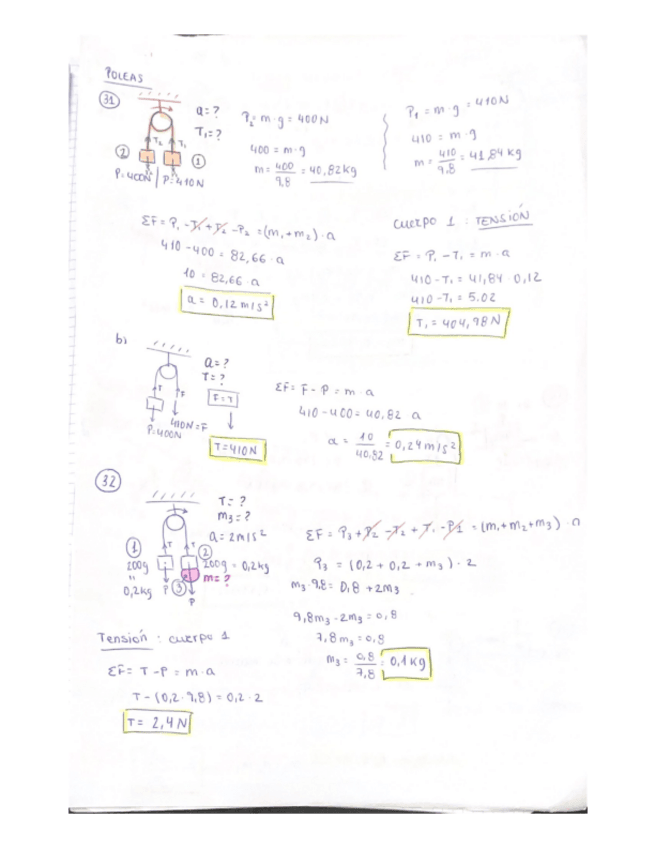 POLEAS
31
a = ?
T₁ = ?
T₂ T₁
2 1
P=400N P=410N
P₂ = m·g = 400N
400 = m·g
m = 400/9,8 = 40,82 kg
P₁ = m·g = 410N
410 = m·g
m = 410/9,8 = 41,84 kg
ΣF = P₁ - T₁ + T₂ - P₂ = (m₁+m₂)·a
410 - 400 = 82,66·a
10 = 82,66·a
a = 0,12 m/s²
cuerpo 1 : TENSIÓN
ΣF = P₁ - T₁ = m·a
410 - T₁ = 41,84·0,12
410 - T₁ = 5.02
T₁ = 404,98 N
b)
a = ?
T = ?
F = T
T F
410N = F
P=400N
T = 410N
ΣF = F - P = m·a
410 - 400 = 40,82 a
a = 10/40,82 = 0,24 m/s²
32
T = ?
m₃ = ?
a = 2 m/s²
T T
1 2
200g 200g = 0,2kg
"
0,2kg P 3 m = ?
P
ΣF = P₃ + P₂ - T₂ + T₁ - P1 = (m₁+m₂+m₃)·a
P₃ = (0,2 + 0,2 + m₃)·2
m₃·9,8 = 0,8 + 2m₃
9,8m₃ - 2m₃ = 0,8
7,8m₃ = 0,8
m₃ = 0,8/7,8 = 0,1 kg
Tensión : cuerpo 1
ΣF = T - P = m·a
T - (0,2·9,8) = 0,2·2
T = 2,4 N